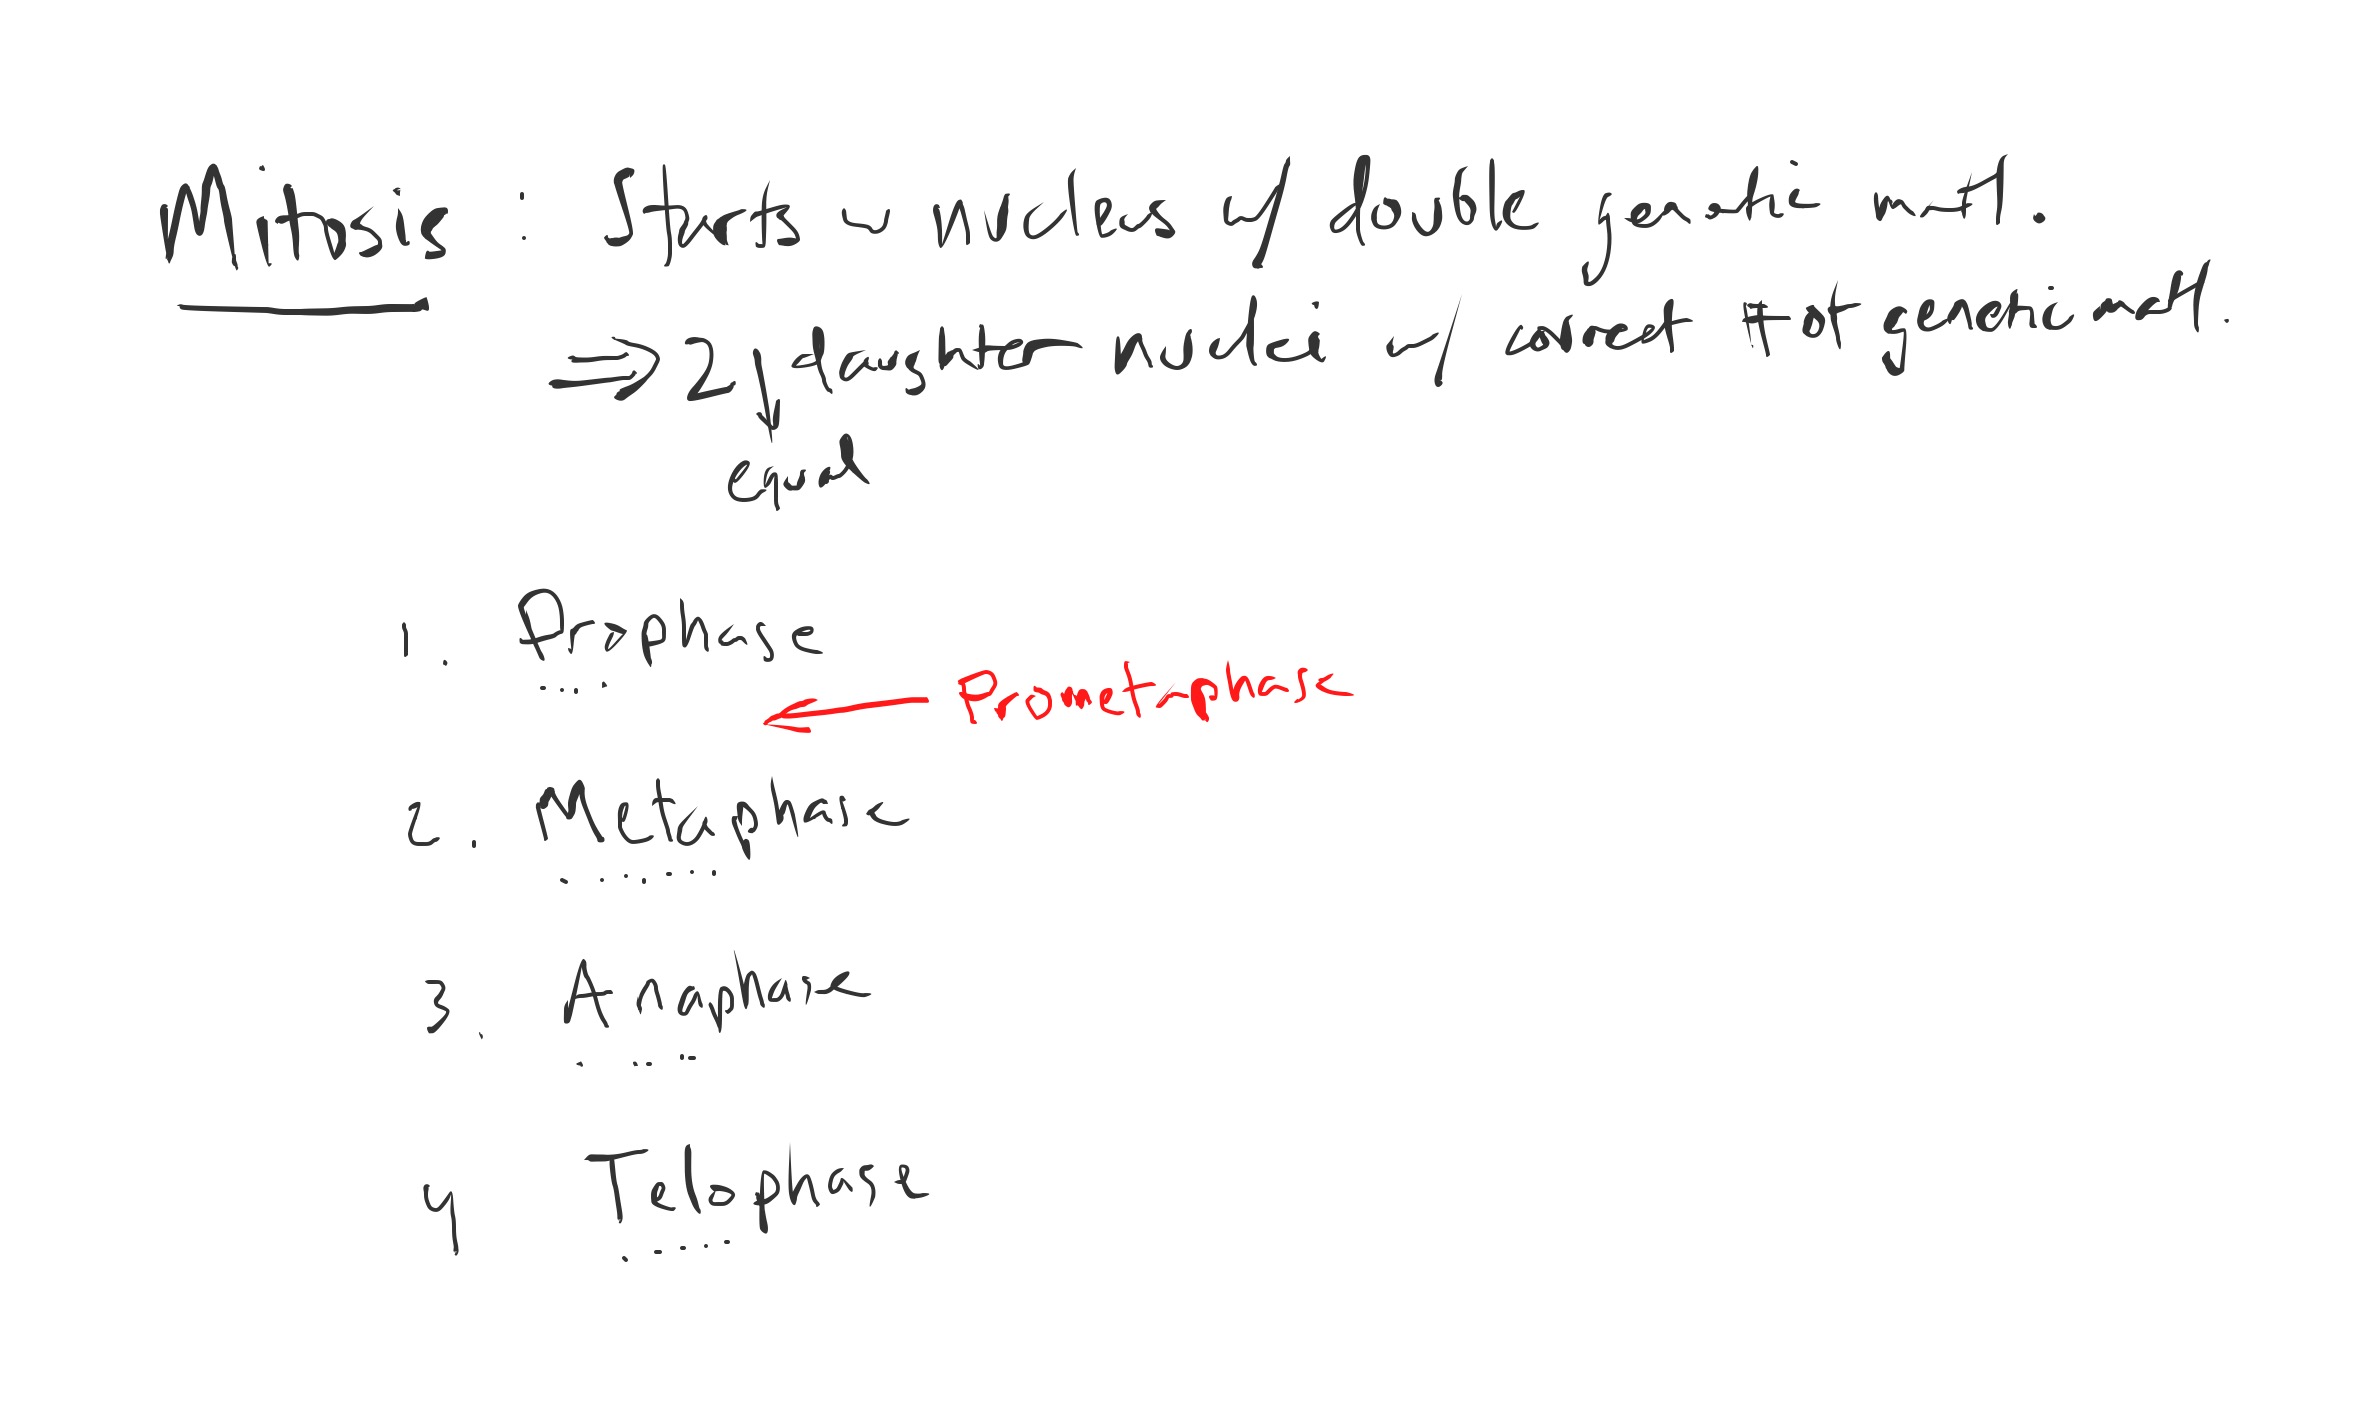 Mitosis : Starts w nucleus w/ double genetic matl.
⇒ 2 daughter nuclei w/ correct # of genetic matl.
equal
1. Prophase
← Prometaphase
2. Metaphase
3. Anaphase
4 Telophase